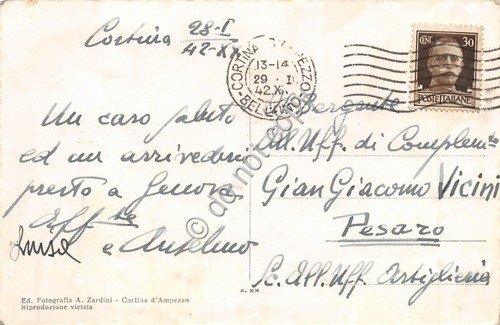 Cortina 28-I
42-XX
CORTINA D'AMPEZZO
13-14
29 . I
42.X
BELLUNO
CENT. 30
POSTE ITALIANE
Un caro saluto
ed un arrivederci
presto a Genova
Aff.te
Luisa e Anselmo
Sergente
All. Uff. di Complem.to
Gian Giacomo Vicini
Pesaro
Sc. All. Uff. Artiglieria
Ed. Fotografia A. Zardini - Cortina d'Ampezzo
Riproduzione vietata
A. XX